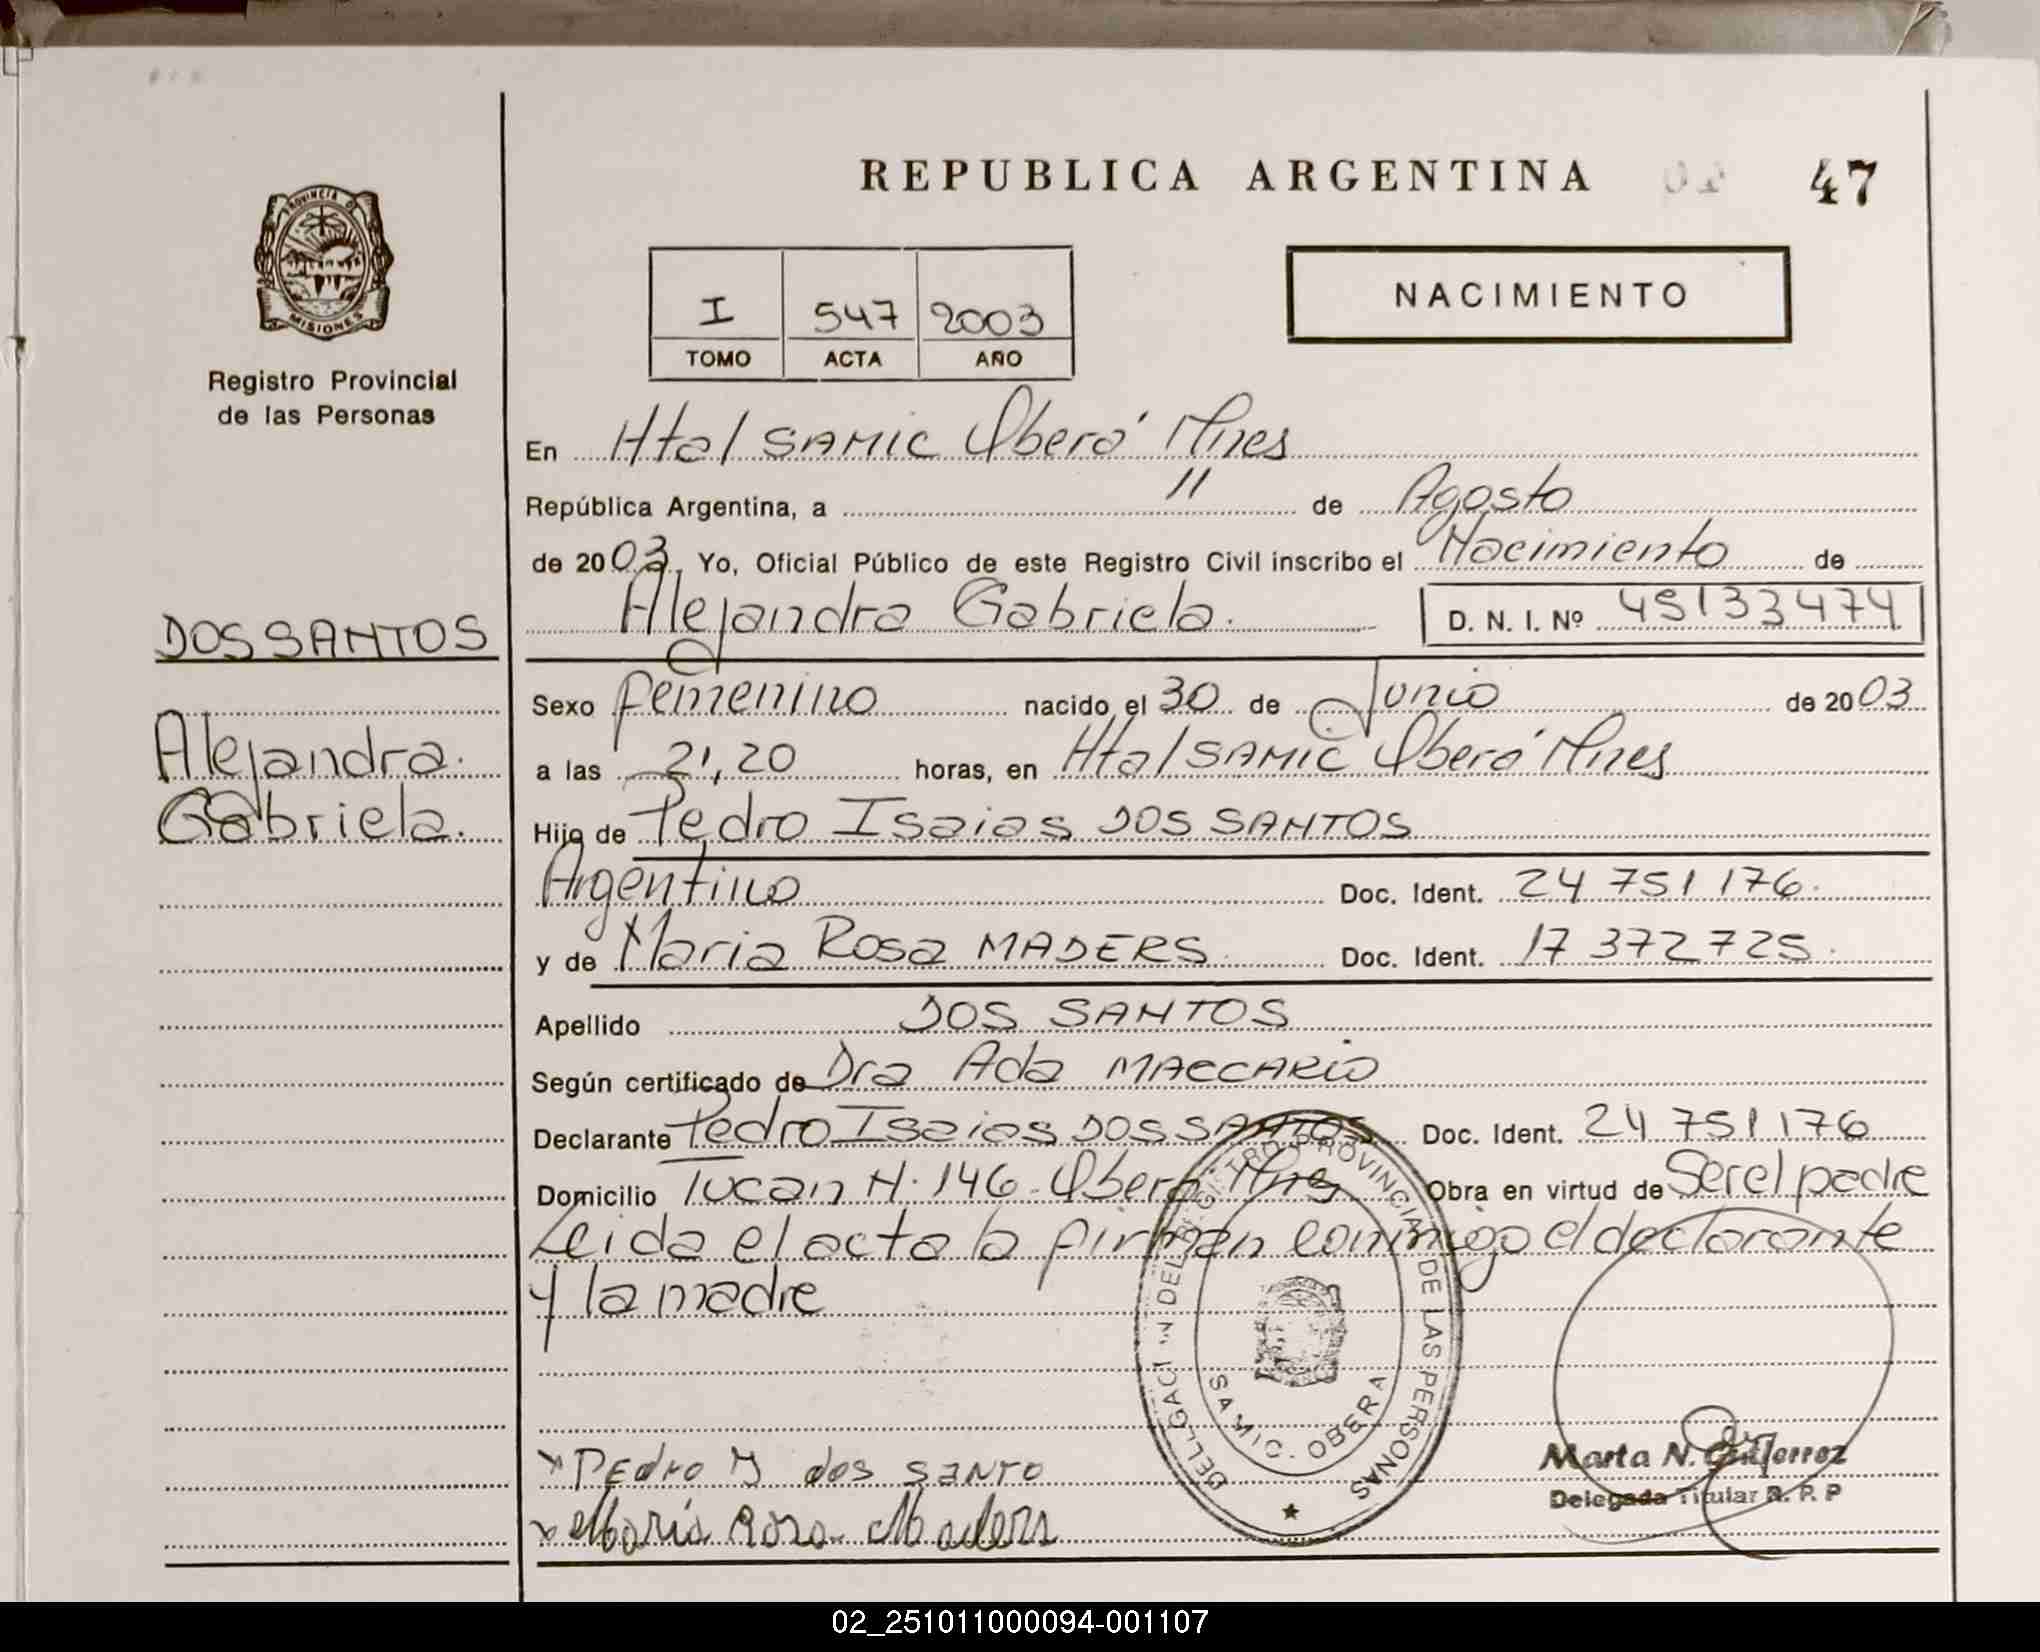 REPUBLICA ARGENTINA 47
PROVINCIA DE
MISIONES
Registro Provincial
de las Personas
I 547 2003
TOMO ACTA AÑO
NACIMIENTO
En Htal SAMIC Oberá Mnes
República Argentina, a 11 de Agosto
de 2003. Yo, Oficial Público de este Registro Civil inscribo el Nacimiento de
Alejandra Gabriela. D. N. I. Nº 45133474
DOS SANTOS
Alejandra.
Gabriela.
Sexo femenino nacido el 30 de Junio de 2003
a las 21,20 horas, en Htal SAMIC Oberá Mnes
Hijo de Pedro Isaias DOS SANTOS
Argentino Doc. Ident. 24 751 176.
y de Maria Rosa MADERS. Doc. Ident. 17 372 725.
Apellido DOS SANTOS
Según certificado de Dra Ada MACCARIO
Declarante Pedro Isaias DOS SANTOS Doc. Ident. 24 751 176
Domicilio Tucan N. 146 - Oberá Mnes Obra en virtud de Ser el padre
Leida el acta la firman conmigo el declarante
y la madre
DELEGACION DEL REGISTRO PROVINCIAL DE LAS PERSONAS
SAMIC. OBERA
x Pedro Y dos santo
x Maria Rosa Maders
Marta N. Gutierrez
Delegada Titular R. P. P
02_251011000094-001107